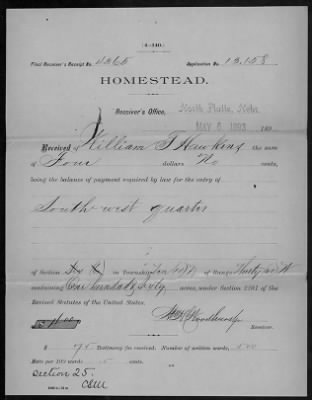 (4—140.)
Final Receiver's Receipt No. 4365 Application No. 13,158
HOMESTEAD.
Receiver's Office, North Platte, Nebr.
MAY 6 1893 189
Received of William T Hawkins the sum
of Four dollars No cents,
being the balance of payment required by law for the entry of
South west quarter
of Section Six (6) in Township of Range
containing One hundred & Sixty acres, under Section 2291 of the
Revised Statutes of the United States.
$4.00
Receiver.
$ .75 Testimony fee received. Number of written words, 500
Rate per 100 words 15 cents.
Section 25.